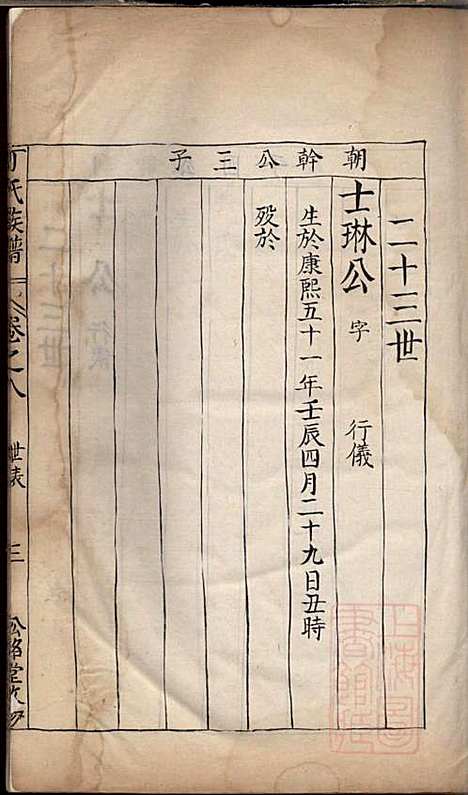 二十三世
朝幹公三子
士琳公 字 行儀
生於康熙五十一年壬辰四月二十九日丑時
歿於
丁氏族譜 卷之八 世表 三
上海圖書館藏